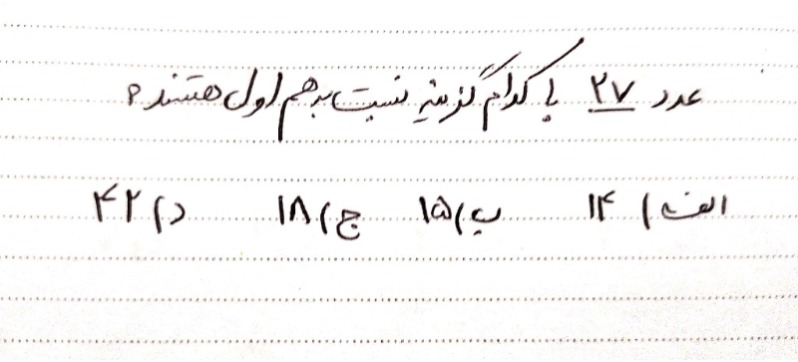 عدد ۲۷ با کدام گزینه نسبت به هم اول هستند؟
الف) ۱۴ ب) ۱۵ ج) ۱۸ د) ۴۲